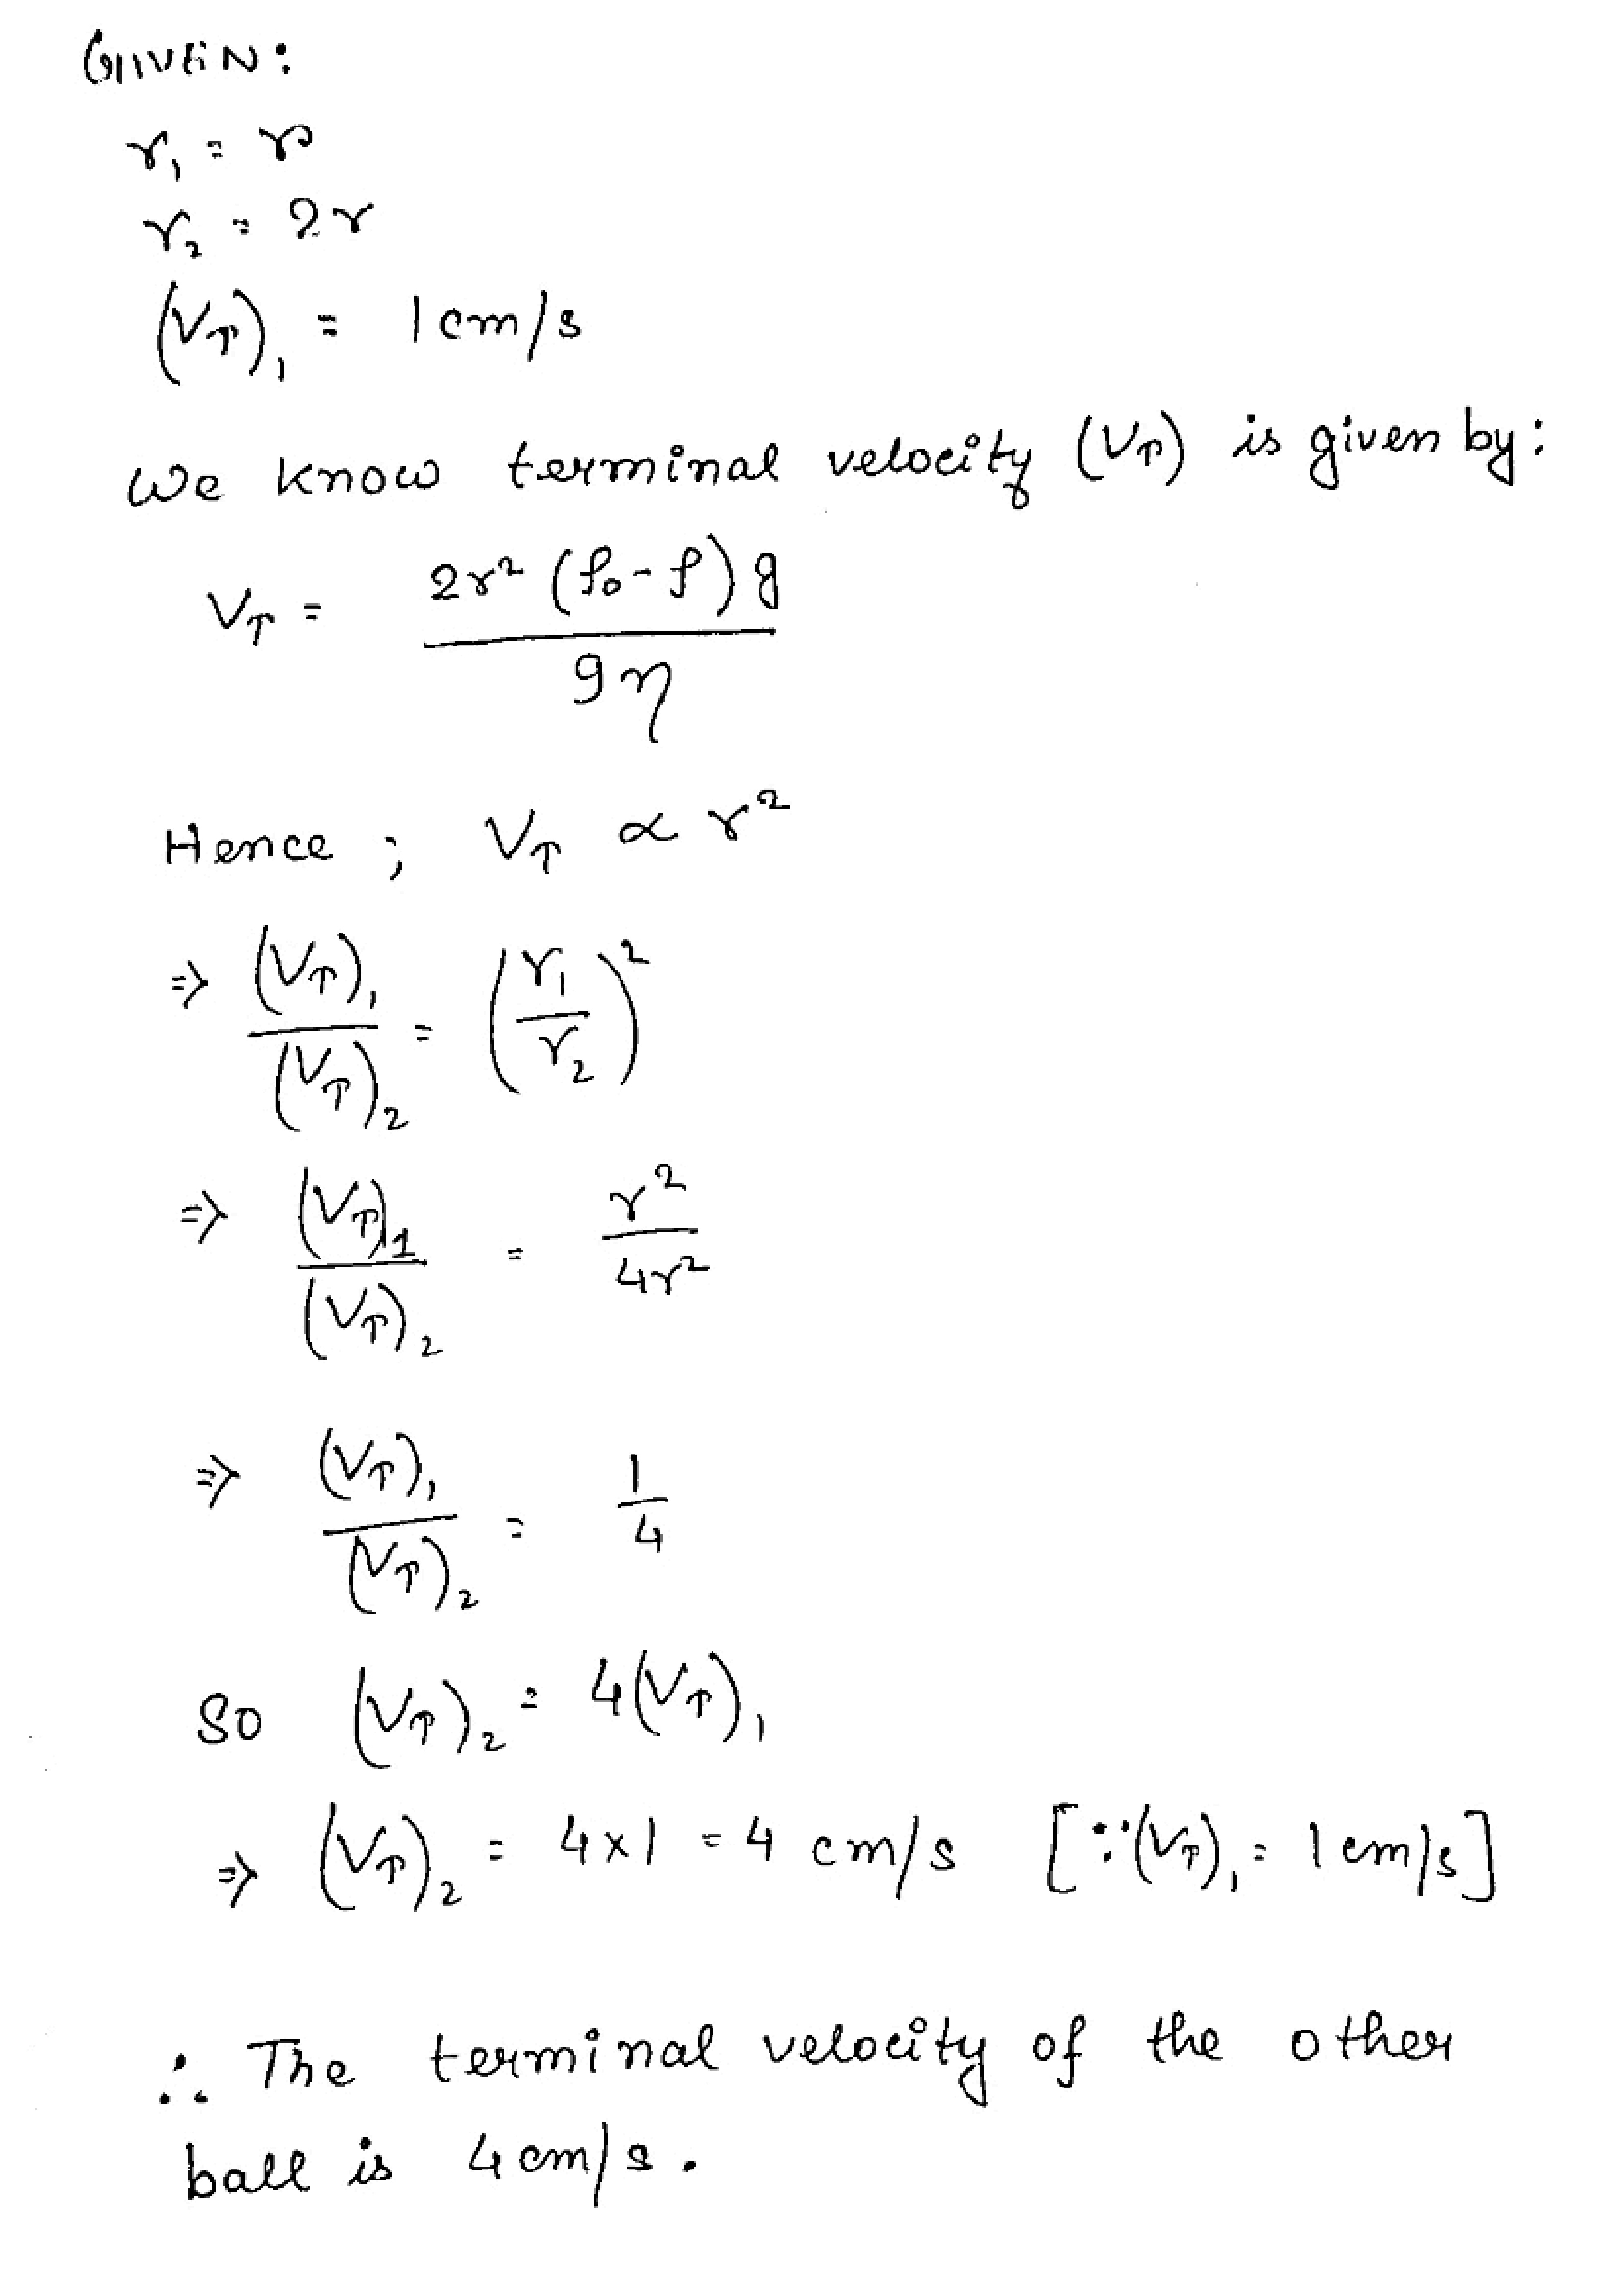 GIVEN:
r₁ = r
r₂ = 2r
(V_T)₁ = 1 cm/s
We know terminal velocity (V_T) is given by:
V_T = 2r² (ρ₀ - ρ) g / 9η
Hence ; V_T ∝ r²
⇒ (V_T)₁ / (V_T)₂ = (r₁ / r₂)²
⇒ (V_T)₁ / (V_T)₂ = r² / 4r²
⇒ (V_T)₁ / (V_T)₂ = 1 / 4
So (V_T)₂ = 4(V_T)₁
⇒ (V_T)₂ = 4 × 1 = 4 cm/s [∵ (V_T)₁ = 1 cm/s]
∴ The terminal velocity of the other
ball is 4 cm/s.